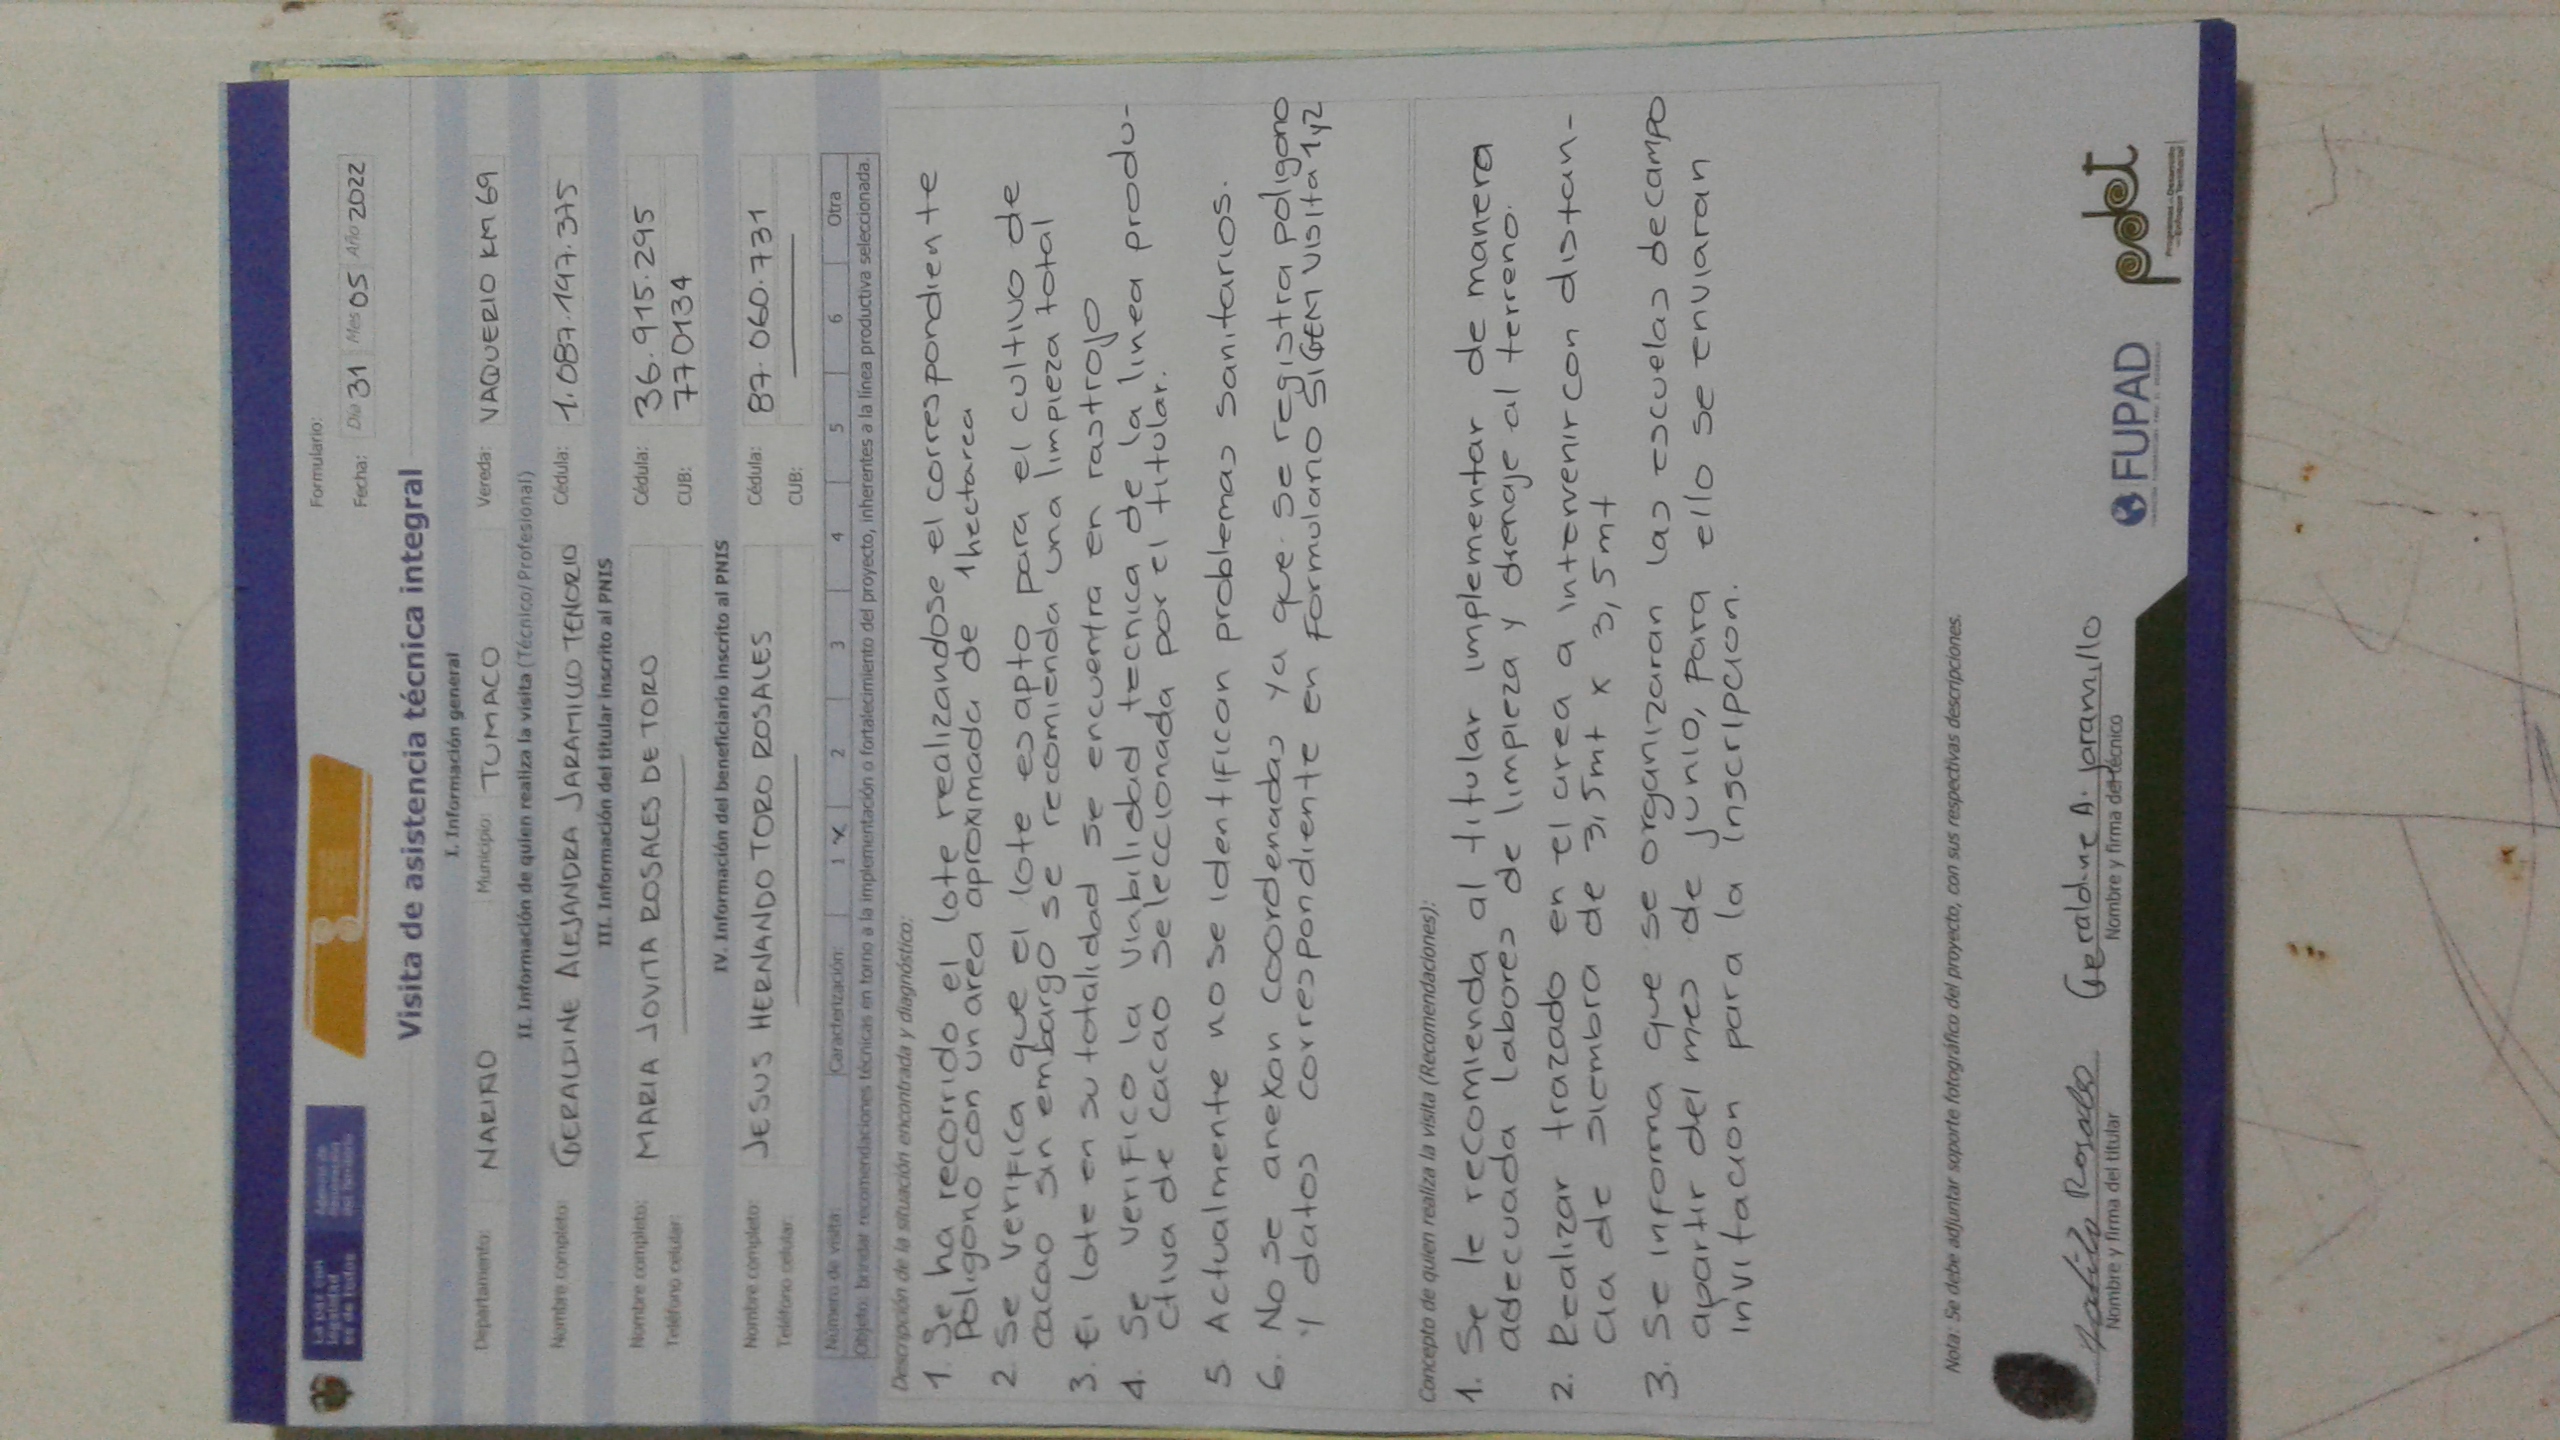 La paz con
legalidad
es de todos
Agencia de
Renovación
del Territorio
Formulario:
Fecha: Día 31 Mes 05 Año 2022
Visita de asistencia técnica integral
I. Información general
Departamento: NARIÑO Municipio: TUMACO Vereda: VAQUERIO KM 69
II. Información de quien realiza la visita (Técnico/ Profesional)
Nombre completo: GERALDINE ALEJANDRA JARAMILLO TENORIO Cédula: 1.087.197.375
III. Información del titular inscrito al PNIS
Nombre completo: MARIA JOVITA ROSALES DE TORO Cédula: 36.915.295
Teléfono celular: CUB: 770134
IV. Información del beneficiario inscrito al PNIS
Nombre completo: JESUS HERNANDO TORO ROSALES Cédula: 87.060.731
Teléfono celular: CUB:
Número de visita: Caracterización: 1 X 2 3 4 5 6 Otra
Objeto: brindar recomendaciones técnicas en torno a la implementación o fortalecimiento del proyecto, inherentes a la línea productiva seleccionada.
Descripción de la situación encontrada y diagnóstico:
1. Se ha recorrido el lote realizandose el correspondiente
Poligono con un area aproximada de 1 hectarea
2. Se verifica que el lote es apto para el cultivo de
cacao sin embargo se recomienda una limpieza total
3. El lote en su totalidad se encuentra en rastrojo
4. Se verifico la viabilidad tecnica de la linea produ-
ctiva de cacao seleccionada por el titular.
5. Actualmente no se identifican problemas sanitarios.
6. No se anexan coordenadas ya que se registra poligono
y datos correspondiente en formulario SIGEM visita 1 y 2
Concepto de quien realiza la visita (Recomendaciones):
1. Se le recomienda al titular implementar de manera
adecuada labores de limpieza y drenaje al terreno.
2. Realizar trazado en el area a intervenir con distan-
cia de siembra de 3,5 mt x 3,5 mt
3. Se informa que se organizaran las escuelas de campo
apartir del mes de junio, para ello se enviaran
invitacion para la inscripcion.
Nota: Se debe adjuntar soporte fotográfico del proyecto, con sus respectivas descripciones.
Rosales Geraldine A. Jaramillo
Nombre y firma del titular Nombre y firma del técnico
FUPAD
pdet
Programas de Desarrollo
con Enfoque Territorial